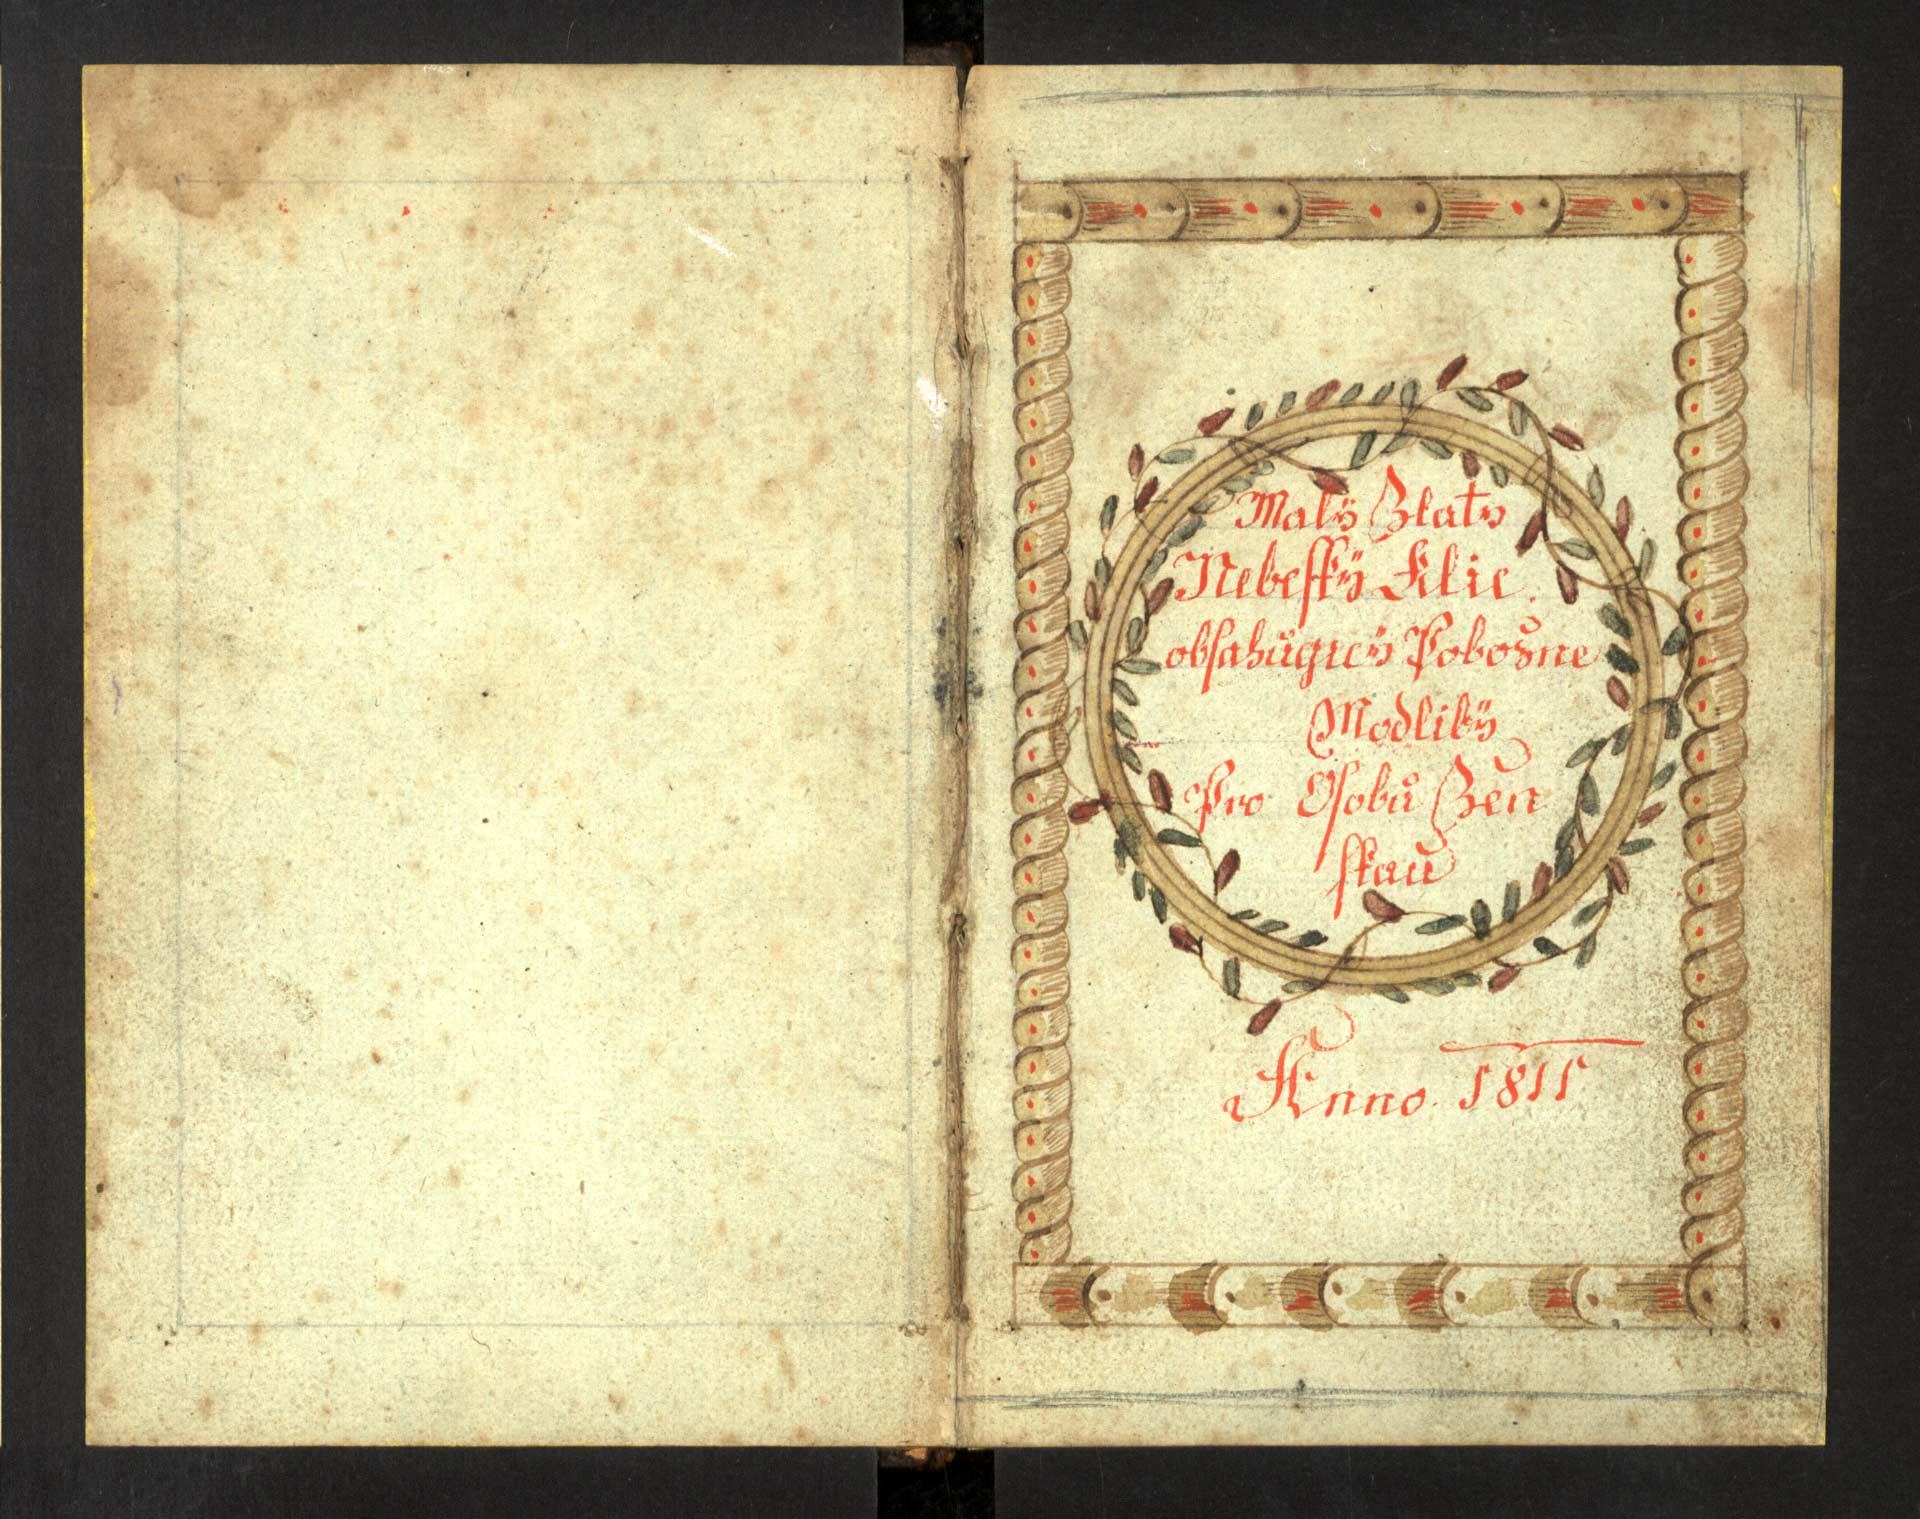 Malÿ Zlaty
Nebeskÿ Klic.
obsahügicÿ Pobožne
Modlibÿ
Pro Osobů Žen
skaü
Anno. 1811